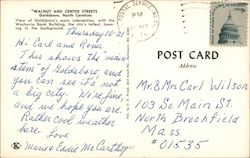 "WALNUT AND CENTER STREETS
Goldsboro, North Carolina
View of Goldsboro's main intersection, with the
Wachovia Bank Building, the city's tallest, loom-
ing in the background.
Thursday 10-21
Hi Carl and Rena,
This shows the "main
stem" of Goldsboro, and
you can see it's not
a big city. We're fine,
and we hope you are.
Rather cool weather
here. Love
Eddie McCarthy
POST CARD
Address
Mr. & Mrs Carl Wilson
103 So Main St.
North Brookfield
Mass.
# 01535
U.S. POSTAL SERVICE
PM